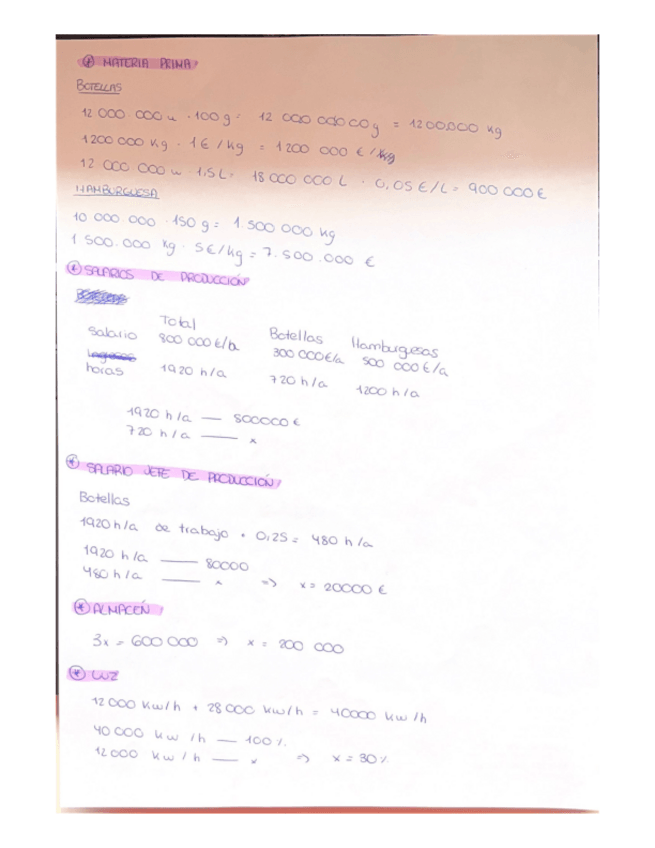 * MATERIA PRIMA
BOTELLAS
12 000.000 u · 100 g = 12 000 000 00 g = 1200.000 kg
1200 000 kg · 1€/kg = 1200 000 €
12 000 000 u · 1,5 L = 18 000 000 L · 0,05 €/L = 900 000 €
HAMBURGUESA
10 000 000 · 150 g = 1.500 000 kg
1 500.000 kg · 5€/kg = 7.500.000 €
* SALARIOS DE PRODUCCIÓN
Total Botellas Hamburguesas
Salario 800 000 €/a 300 000€/a 500 000 €/a
horas 1920 h/a 720 h/a 1200 h/a
1920 h/a — 800000 €
720 h/a — x
* SALARIO JEFE DE PRODUCCIÓN
Botellas
1920 h/a de trabajo · 0,25 = 480 h/a
1920 h/a — 80000
480 h/a — x => x = 20000 €
* ALMACÉN
3x = 600 000 => x = 200 000
* LUZ
12 000 kw/h + 28 000 kw/h = 40000 kw/h
40 000 kw/h — 100%
12 000 kw/h — x => x = 30%